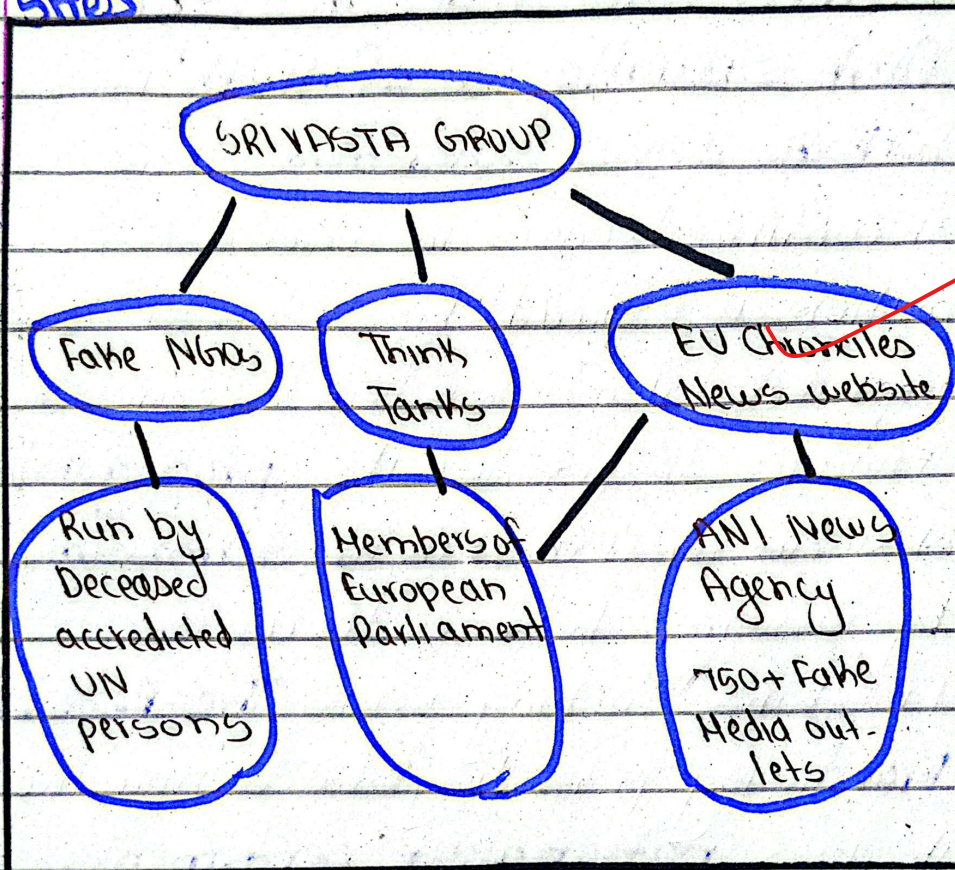 Sites
SRIVASTA GROUP
Fake NGOs
Think
Tanks
EU Chronciles
News website
Run by
Deceased
accredicted
UN
persons
Members of
European
Parliament
ANI News
Agency
750+ Fake
Media out-
lets